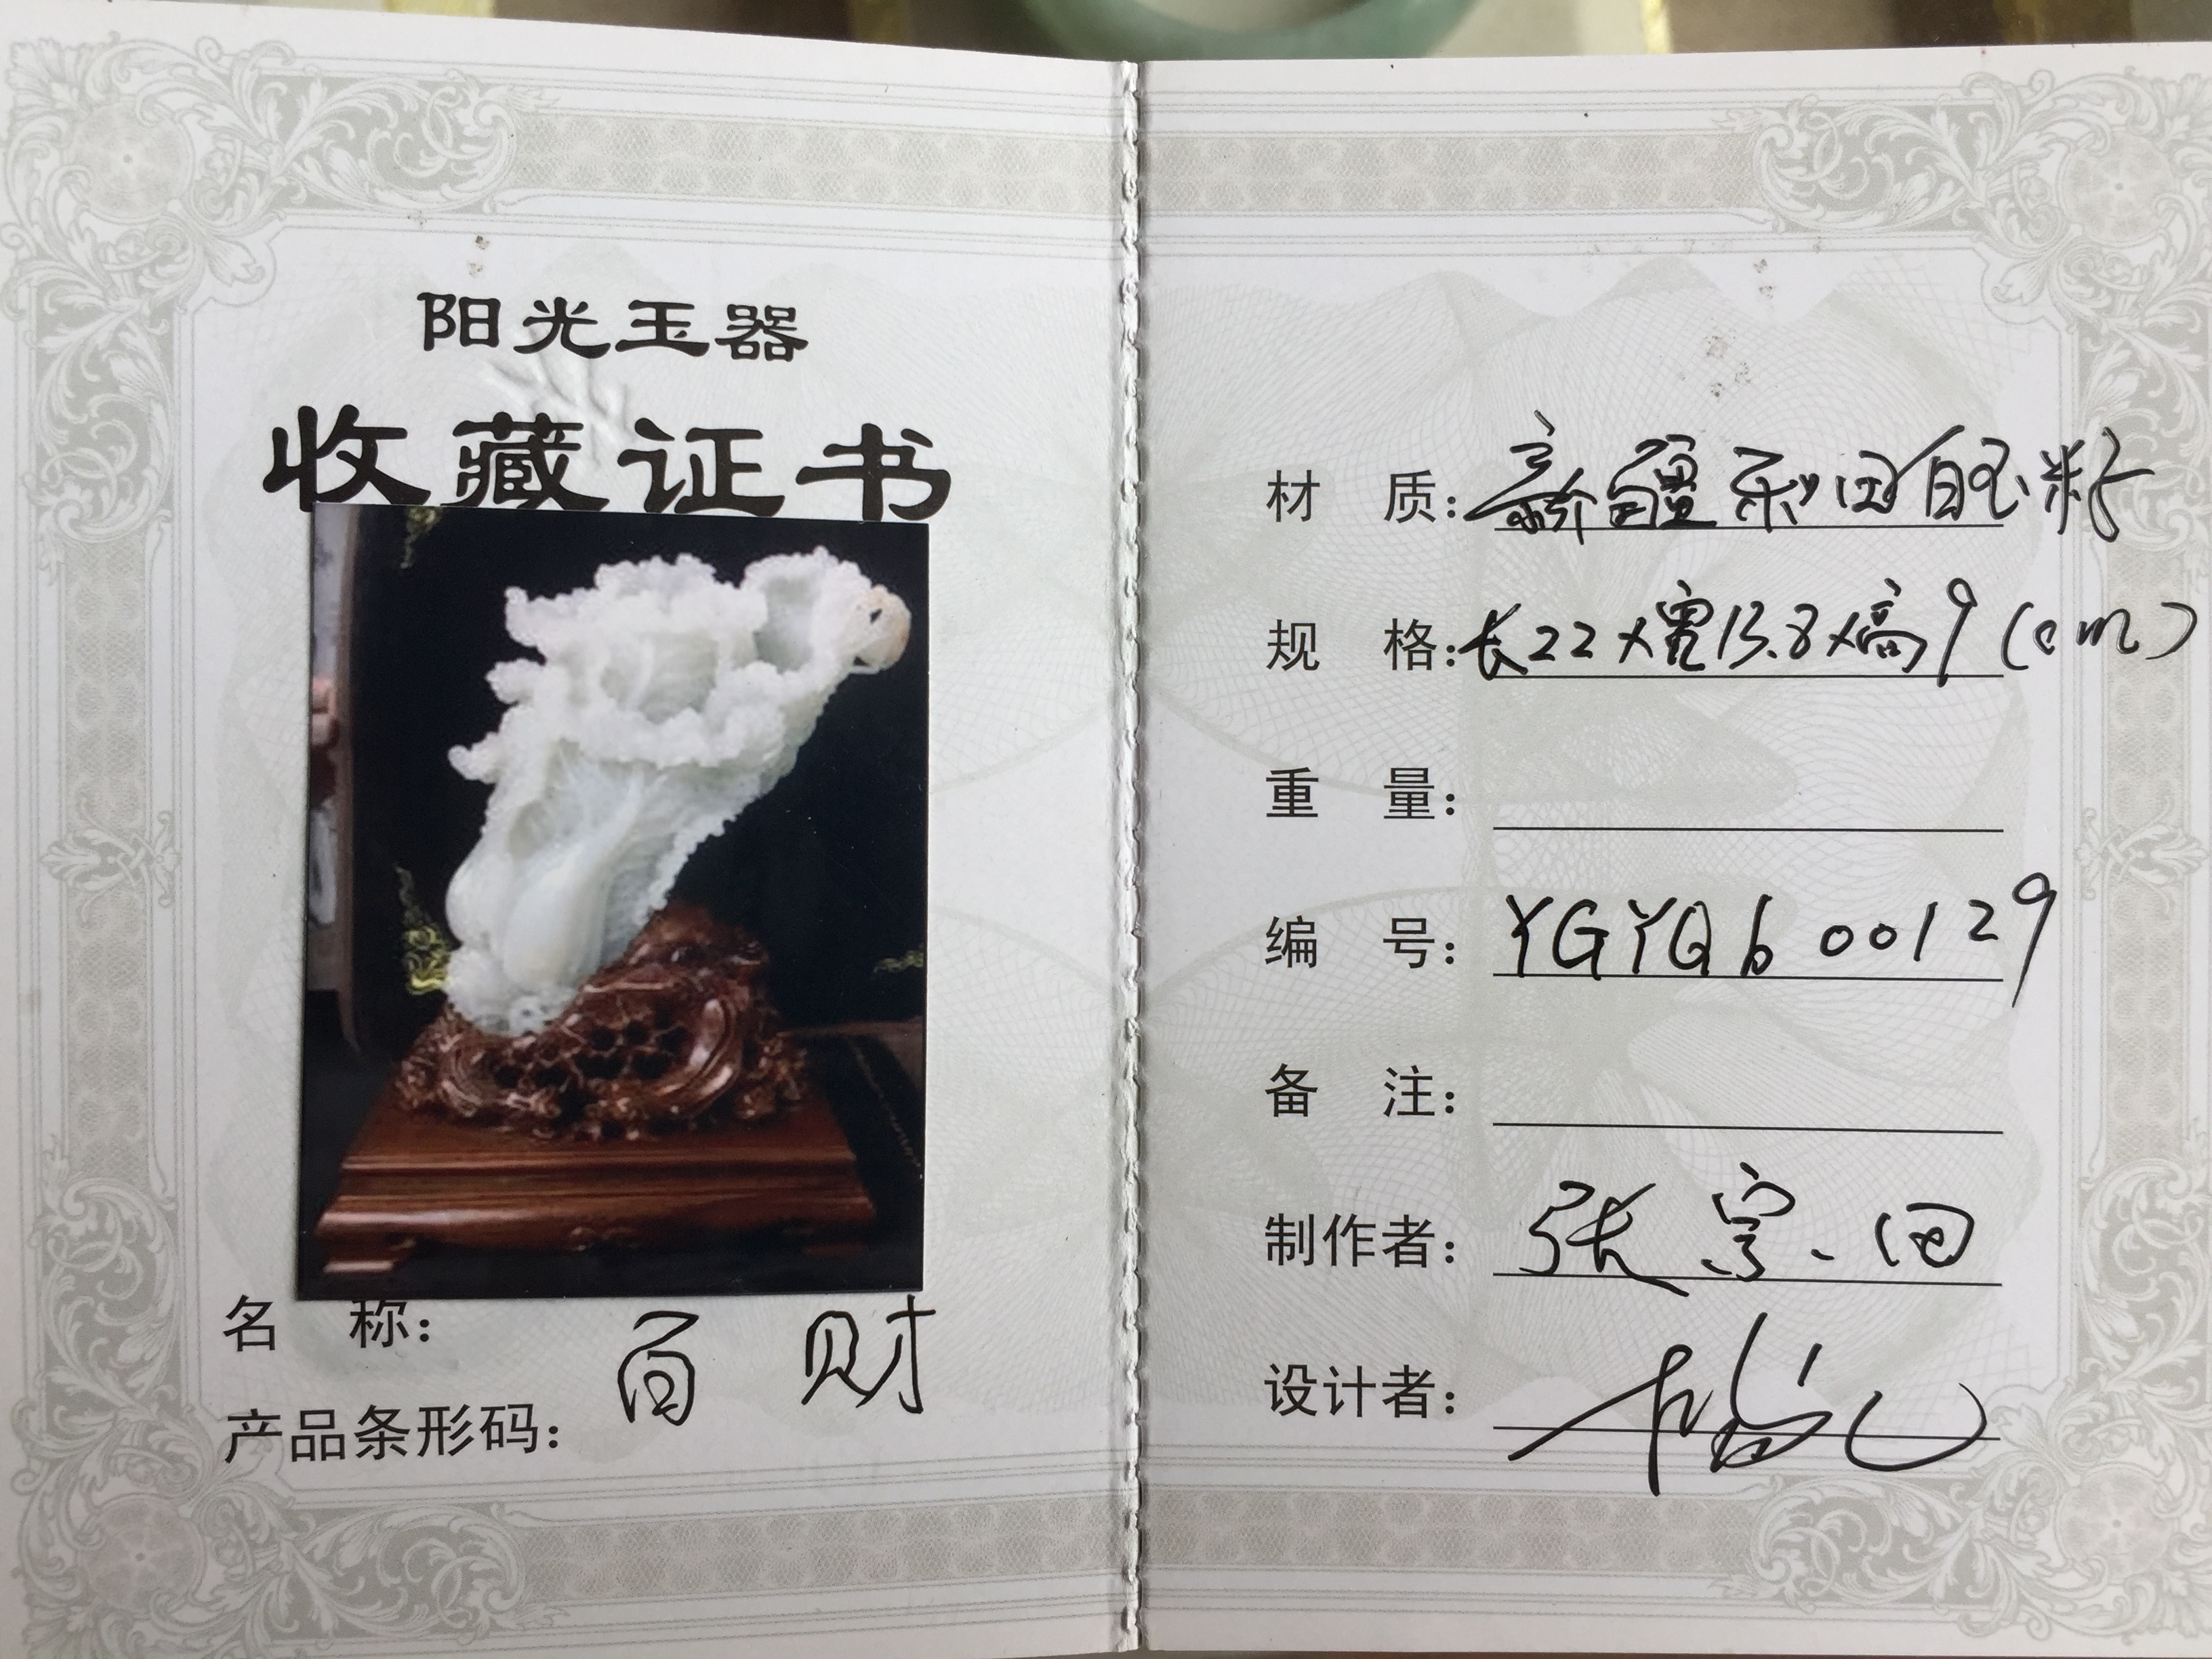 阳光玉器
收藏证书
名 称：百财
产品条形码：
材 质：新疆和田白玉籽
规 格：长22×宽13.8×高9(cm)
重 量：
编 号：YGYQb00129
备 注：
制作者：张宗田
设计者：